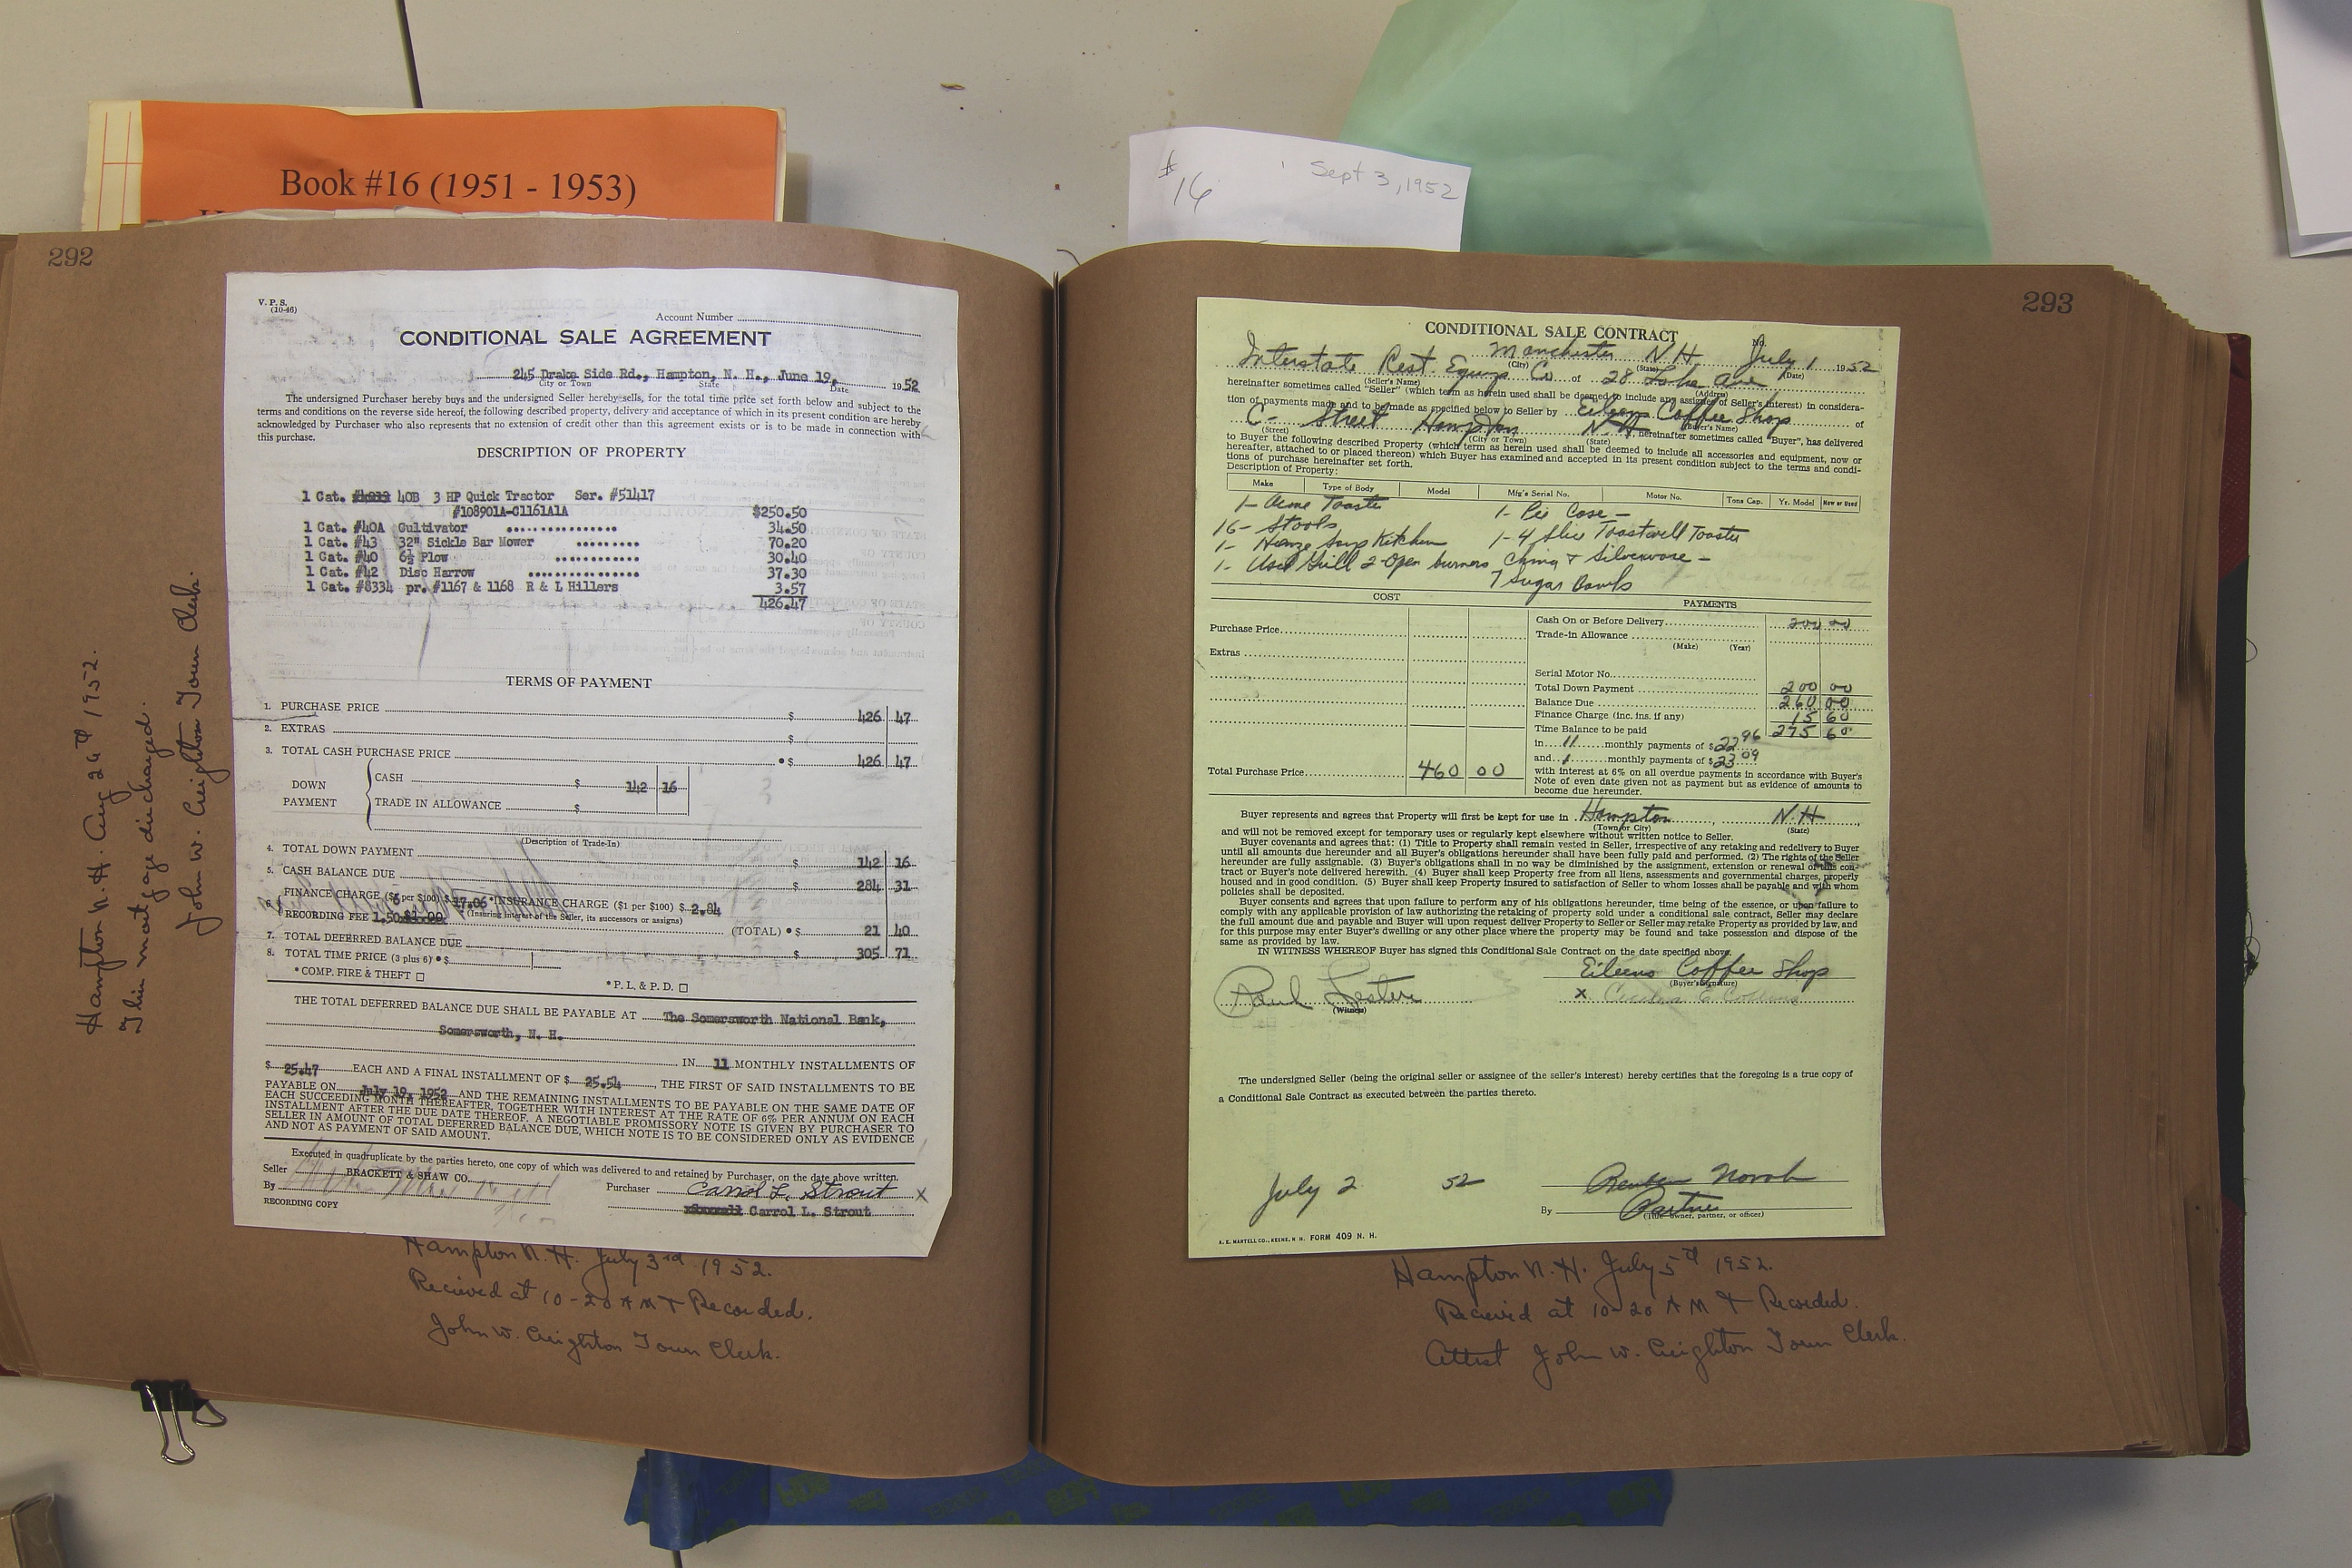 Book #16 (1951 - 1953)
# 16 Sept 3, 1952
292
Hampton N. H. Aug 26th 1952.
This mortgage discharged.
John W. Creighton Town Clerk.
V. P. S.
(10-46)
Account Number
CONDITIONAL SALE AGREEMENT
245 Drake Side Rd., Hampton, N. H., June 19, 1952
City or Town State Date
The undersigned Purchaser hereby buys and the undersigned Seller hereby sells, for the total time price set forth below and subject to the
terms and conditions on the reverse side hereof, the following described property, delivery and acceptance of which in its present condition are hereby
acknowledged by Purchaser who also represents that no extension of credit other than this agreement exists or is to be made in connection with
this purchase.
DESCRIPTION OF PROPERTY
1 Cat. 40B 3 HP Quick Tractor Ser. #51417
#108901A-C1161A1A $250.50
1 Cat. #40A Cultivator 34.50
1 Cat. #43 32" Sickle Bar Mower 70.20
1 Cat. #40 6½ Plow 30.40
1 Cat. #42 Disc Harrow 37.30
1 Cat. #8334 pr. #1167 & 1168 R & L Hillers 3.57
426.47
TERMS OF PAYMENT
1. PURCHASE PRICE $ 426 47
2. EXTRAS $
3. TOTAL CASH PURCHASE PRICE • $ 426 47
DOWN PAYMENT
CASH $ 142 16
TRADE IN ALLOWANCE $
(Description of Trade-In)
4. TOTAL DOWN PAYMENT $ 142 16
5. CASH BALANCE DUE $ 284 31
6. FINANCE CHARGE ($6 per $100) $ 17.06 *INSURANCE CHARGE ($1 per $100) $ 2.84
RECORDING FEE 1.50 $1.00 * (Insuring interest of the Seller, its successors or assigns)
(TOTAL) • $ 21 40
7. TOTAL DEFERRED BALANCE DUE $ 305 71
8. TOTAL TIME PRICE (3 plus 6) • $
* COMP. FIRE & THEFT ☐ * P. L. & P. D. ☐
THE TOTAL DEFERRED BALANCE DUE SHALL BE PAYABLE AT The Somersworth National Bank,
Somersworth, N. H.
IN 11 MONTHLY INSTALLMENTS OF
$ 25.47 EACH AND A FINAL INSTALLMENT OF $ 25.54, THE FIRST OF SAID INSTALLMENTS TO BE
PAYABLE ON July 19, 1952 AND THE REMAINING INSTALLMENTS TO BE PAYABLE ON THE SAME DATE OF
EACH SUCCEEDING MONTH THEREAFTER, TOGETHER WITH INTEREST AT THE RATE OF 6% PER ANNUM ON EACH
INSTALLMENT AFTER THE DUE DATE THEREOF. A NEGOTIABLE PROMISSORY NOTE IS GIVEN BY PURCHASER TO
SELLER IN AMOUNT OF TOTAL DEFERRED BALANCE DUE, WHICH NOTE IS TO BE CONSIDERED ONLY AS EVIDENCE
AND NOT AS PAYMENT OF SAID AMOUNT.
Executed in quadruplicate by the parties hereto, one copy of which was delivered to and retained by Purchaser, on the date above written.
Seller BRACKETT & SHAW CO.
By
Purchaser Carrol L. Strout X
Carrol L. Strout
RECORDING COPY
Hampton N. H. July 3rd 1952.
Recieved at 10-20 A M + Recorded.
John W. Creighton Town Clerk.
293
CONDITIONAL SALE CONTRACT
No.
Manchester N. H. July 1 1952
(City) (State) (Date)
Interstate Rest. Equip Co of 28 Lake Ave
(Seller's Name) (Address)
hereinafter sometimes called "Seller" (which term as herein used shall be deemed to include any assignee of Seller's interest) in considera-
tion of payments made and to be made as specified below to Seller by Eileens Coffee Shop of
(Buyer's Name)
C- Street Hampton N. H hereinafter sometimes called "Buyer", has delivered
(Street) (City or Town) (State)
to Buyer the following described Property (which term as herein used shall be deemed to include all accessories and equipment, now or
hereafter, attached to or placed thereon) which Buyer has examined and accepted in its present condition subject to the terms and condi-
tions of purchase hereinafter set forth.
Description of Property:
Make Type of Body Model Mfg's Serial No. Motor No. Tons Cap. Yr. Model New or Used
1- Acme Toaster 1- Pie Case -
16- Stools 1-4 Slice Toastwell Toaster
1- Heinze Soup Kitchen China + Silverware -
1- Used Grill 2-Open burners 7 Sugar Bowls
COST PAYMENTS
Purchase Price
Extras
Total Purchase Price 460 00
Cash On or Before Delivery 200 00
Trade-in Allowance
(Make) (Year)
Serial Motor No.
Total Down Payment 200 00
Balance Due 260 00
Finance Charge (inc. ins. if any) 15 60
Time Balance to be paid 275 60
in 11 monthly payments of $22 96
and 1 monthly payments of $23 09
with interest at 6% on all overdue payments in accordance with Buyer's
Note of even date given not as payment but as evidence of amounts to
become due hereunder.
Buyer represents and agrees that Property will first be kept for use in Hampton, N. H,
(Town or City) (State)
and will not be removed except for temporary uses or regularly kept elsewhere without written notice to Seller.
Buyer covenants and agrees that: (1) Title to Property shall remain vested in Seller, irrespective of any retaking and redelivery to Buyer
until all amounts due hereunder and all Buyer's obligations hereunder shall have been fully paid and performed. (2) The rights of the Seller
hereunder are fully assignable. (3) Buyer's obligations shall in no way be diminished by the assignment, extension or renewal of this con-
tract or Buyer's note delivered herewith. (4) Buyer shall keep Property free from all liens, assessments and governmental charges, properly
housed and in good condition. (5) Buyer shall keep Property insured to satisfaction of Seller to whom losses shall be payable and with whom
policies shall be deposited.
Buyer consents and agrees that upon failure to perform any of his obligations hereunder, time being of the essence, or upon failure to
comply with any applicable provision of law authorizing the retaking of property sold under a conditional sale contract, Seller may declare
the full amount due and payable and Buyer will upon request deliver Property to Seller or Seller may retake Property as provided by law, and
for this purpose may enter Buyer's dwelling or any other place where the property may be found and take possession and dispose of the
same as provided by law.
IN WITNESS WHEREOF Buyer has signed this Conditional Sale Contract on the date specified above.
Eileens Coffee Shop
(Buyer's Signature)
Paul Lester
(Witness)
x Cecilia E Collins
The undersigned Seller (being the original seller or assignee of the seller's interest) hereby certifies that the foregoing is a true copy of
a Conditional Sale Contract as executed between the parties thereto.
July 2 52
Reuben Novak
By Partner
(Title: owner, partner, or officer)
A. E. MARTELL CO., KEENE, N. H. FORM 409 N. H.
Hampton N. H. July 5th 1952.
Recieved at 10-20 A M + Recorded.
Attest John W. Creighton Town Clerk.